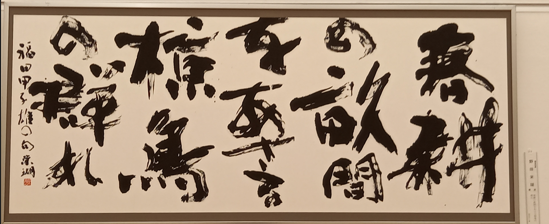 春耕
の畝間
をあさる
椋鳥
の群れ
福田甲子雄の句